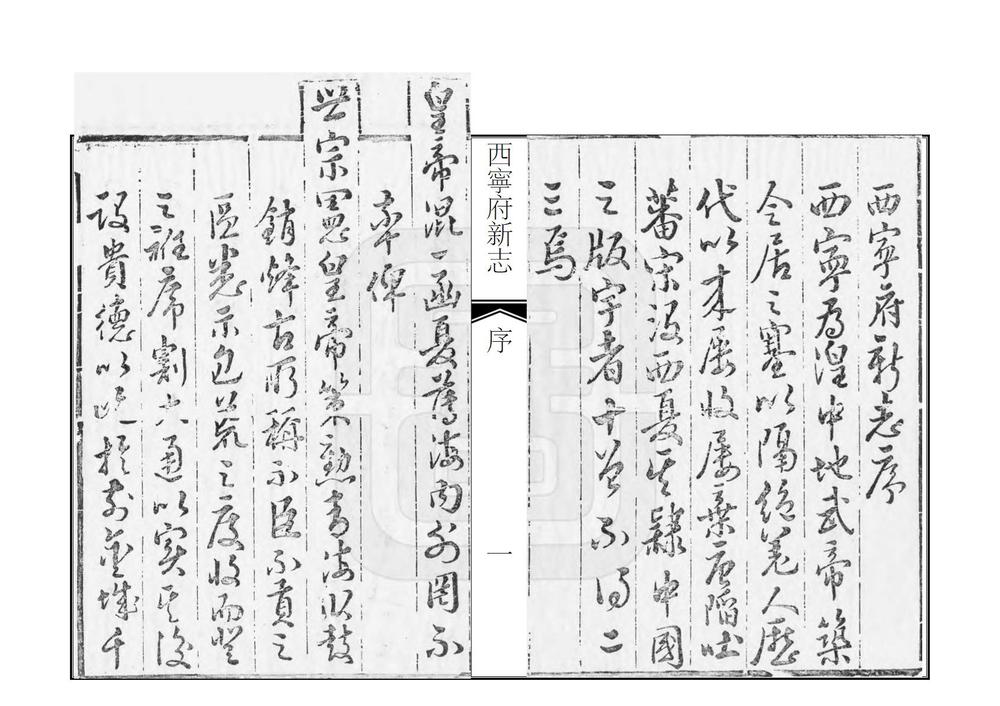 西寧府新志序
西寧為湟中地武帝築
令居之塞以隔絕羌人歷
代以來屢收屢棄唐陷吐
蕃宋沒西夏其隸中國
之版宇者十曾不得二
三焉
西寧府新志
序
一
皇帝混一函夏薄海內外罔不
率俾
世宗憲皇帝策勳青海収鼓
銷烽古所稱不臣不貢之
區悉示包荒之度收而登
之袵席割大通以實其後
設貴德以於前金城千